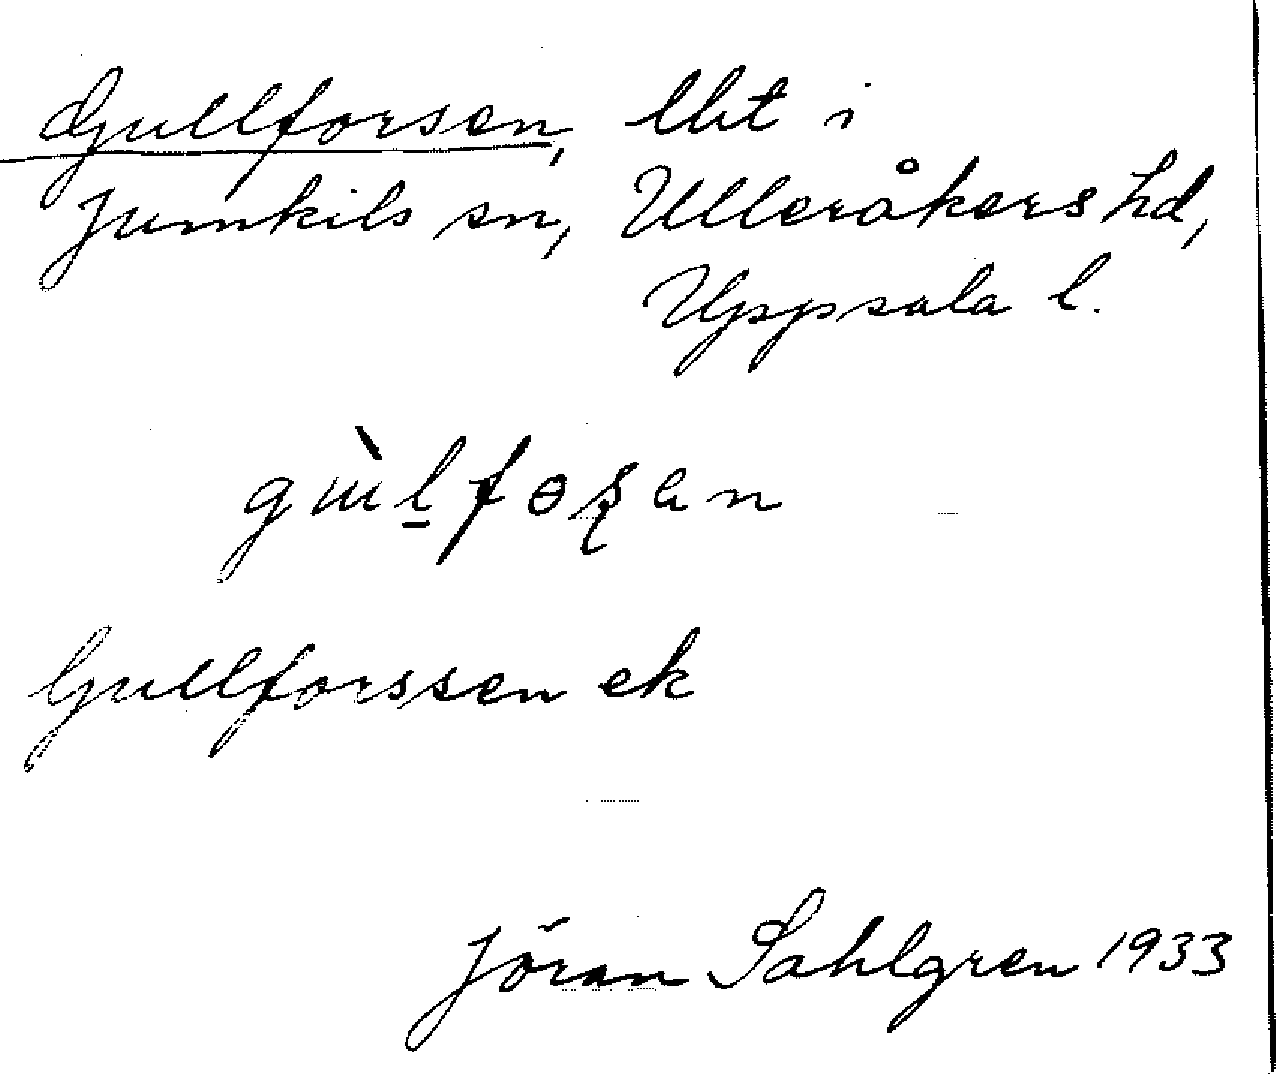 Gullforsen, lht i
Jumkils sn, Ulleråkers hd,
Uppsala l.
Gullforssen ek
Jöran Sahlgren 1933